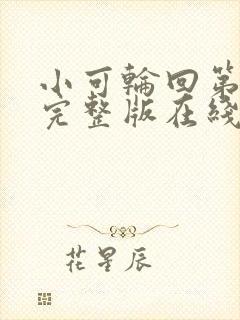 小可輪回第
完整版在綫
花星辰